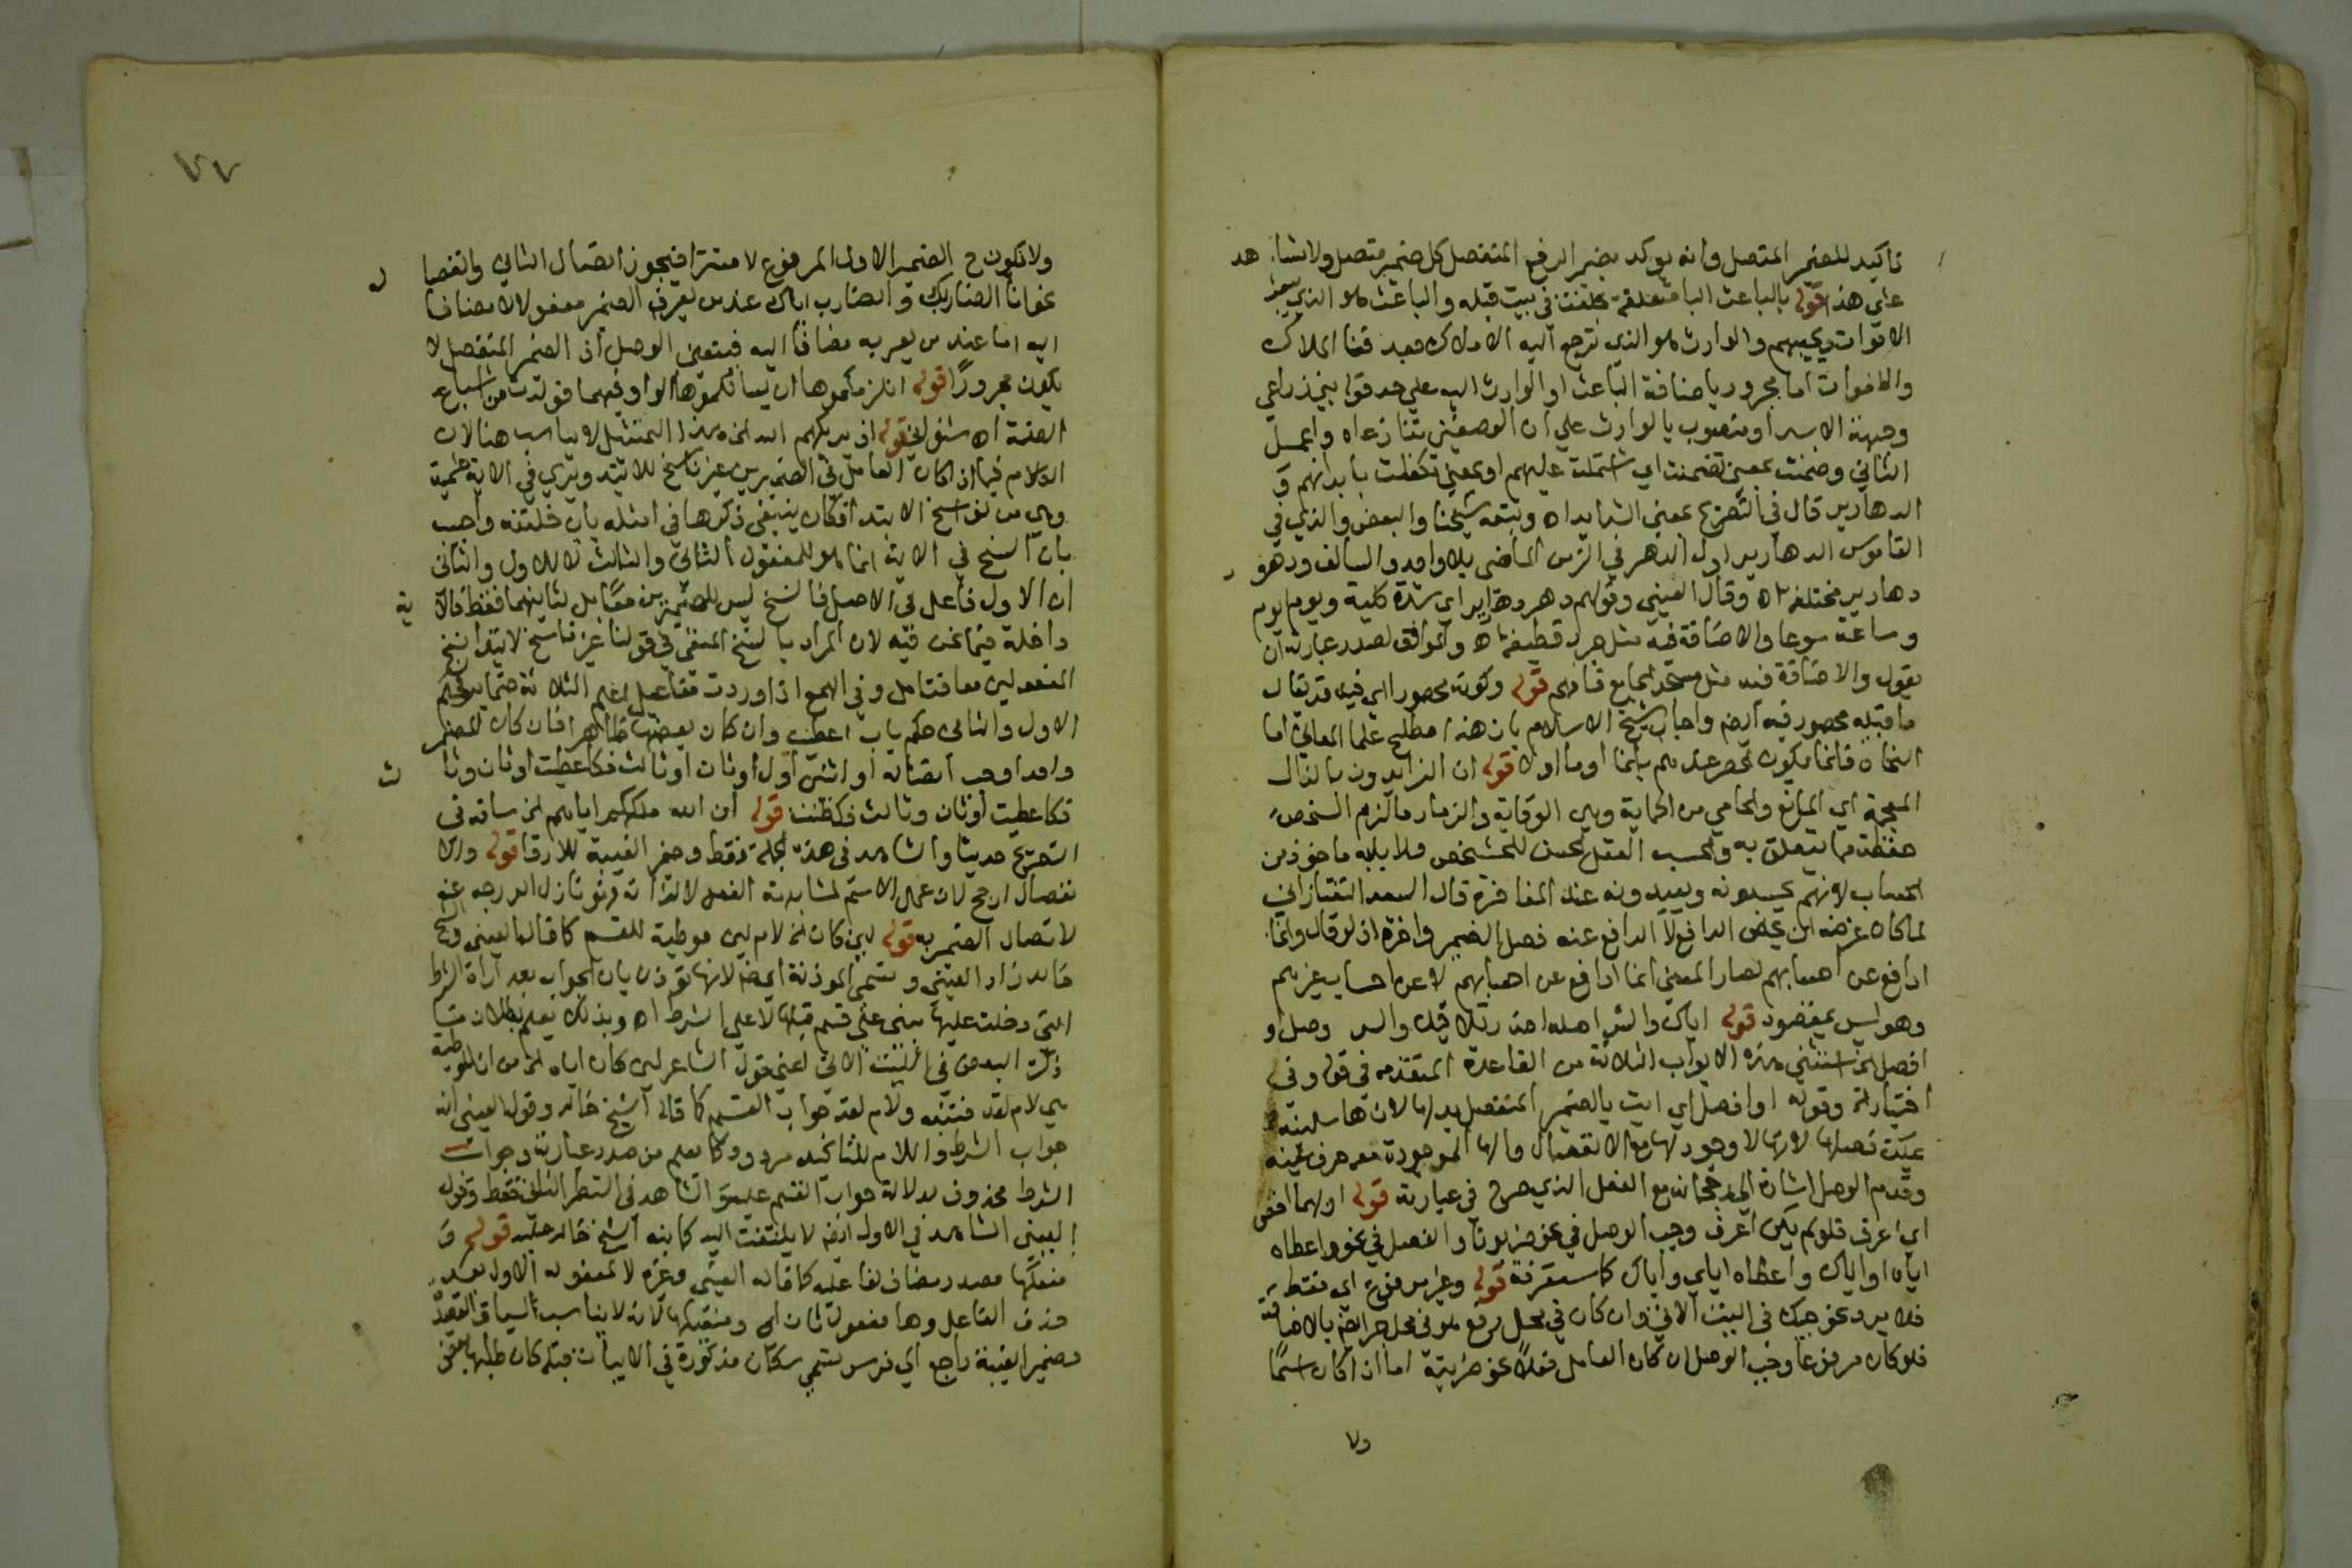 تاكيد للضمير المتصل وانه يوكد بضمير الرفع المنفصل كل ضمير متصل ولا شاهد
على هذا قوله بالباعث البا متعلقة بحلفت في بيت قبله والباعث هو الذي يبعث
الاموات ويحييهم والوارث هو الذي ترجع اليه الاملاك بعد فنا الملاك
والاموات اما مجرور باضافة الباعث او الوارث اليه على حد قوله بين ذراعي
وجبهة الاسد او منصوب بالوارث على ان الوصفين تنازعاه واعمل
الثاني وضمنت بمعنى تضمنت اي اشتملت عليهم او بمعنى تكفلت بابدانهم و
الدهارير قال في التصريح بمعنى الشدايد اه وتبعه شيخنا والبعض والذي في
القاموس الدهارير اول الدهر في الزمن الماضي بلا واحد والسالف ودهور
دهارير مختلفة اه وقال العيني وقولهم دهر دهارير اي شدة كلية ويوم يوم
وساعة سوعا والاضافة فيه مثل جرد قطيفة اه والموافق لصدر عبارته ان
يقول والاضافة فيه مثل مسجد الجامع فافهم قوله وكونه محصورا اي فيه قد يقال
ما قبله محصور فيه ايضا واجاب شيخ الاسلام بان هذا اصطلاح علما المعاني اما
النحاة فانما يكون الحصر عندهم بانما او ما والا قوله انا الذايد وزنا الذال
المعجمة اي المانع والحامي من الحماية وهي الوقاية والذمار ما لزم الشخص
حفظه مما يتعلق به والحسب الفعل الحسن للشخص ولابايه ماخوذ من
الحساب لانهم يحسبونه ويعدونه عند المفاخرة قال السعد التفتازاني
لما كان غرضه ان يخص الدافع لا الدافع عنه فصل الضمير واخره اذ لو قال وانما
ادافع عن احسابهم لصار المعنى انما ادافع عن احسابهم لا عن احساب غيرهم
وهو ليس بمقصود قوله اياك والشر اصله احذر تلاقيك والشر وصل او
افصل الخ استثنى هذه الابواب الثلاثة من القاعدة المتقدمة في قوله وفي
اختيار الخ وقوله او افصل اي ايت بالضمير المنفصل بدلها لان هاسلنيه
يمكن فصلها لانها لا وجود لها مع الانفصال والها الموجودة معه حرف غيبة
وقدم الوصل اشارة الى رجحانه مع الفعل الذي صرح في عبارته قوله اولهما اخص
اي اعرف فلو لم يكن اعرف وجب الوصل في نحو ضربونا والفصل في نحو اعطاه
اياه او اياك واعطاه اياي واياك كما ستعرفه قوله وغير مرفوع اي فقط
فلا يرد نحو حبيك في البيت الاتي وان كان في محل رفع هو في محل جر ايضا بالاضافة
فلو كان مرفوعا وجب الوصل ان كان العامل فعلا نحو ضربته اما اذا كان اسما
ولا
٧٧
ولا يكون ح الضمير الاول المرفوع لا مستترا فيجوز اتصال الثاني وانفصاله
نحو انا الضاربك والضارب اياك عند من يعرب الضمير مفعولا لا مضافا
اليه اما عند من يعربه مضافا اليه فيتعين الوصل اذ الضمير المنفصل لا
يكون مجرورا قوله انلزمكموها ان يسالكموها الواو فيهما تولدت من اشباع
الضمة اه شنواني قوله اذ يريكهم الله الخ هذا التمثيل لا يناسب هنا لان
الكلام فيما اذا كان العامل في الضميرين غير ناسخ للابتدا ويري في الاية علمية
وهي من نواسخ الابتدا فكان ينبغي ذكرها في امثلة باب خلتنيه واجيب
بان النسخ في الاية انما هو للمفعول الثاني والثالث لا للاول والثاني
اذ الاول فاعل في الاصل فالنسخ ليس للضميرين معا بل لثانيهما فقط فالاية
داخلة فيما نحن فيه لان المراد بالنسخ المنفي في قولنا غير ناسخ للابتدا نسخ
المفعولين معا فتامل وفي الهمع اذا وردت مفاعيل اعلم الثلاثة ضماير فحكم
الاول والثاني حكم باب اعطيت وان كان بعضها ظاهرا فان كان المضمر
واحدا وجب اتصاله او اثنين اول وثان او ثالث فكاعطيت او ثان وثالث
فكاعطيت او ثان وثالث فكظننت قوله ان الله ملككم اياهم الخ ساقه في
التصريح حديثا والشاهد في هذه الجملة فقط وضمير الغيبة للارقا قوله والا
نفصال ارجح لان عمل الاسم لمشابهة الفعل لا لذاته فهو نازل الدرجة عنه
لاتصال الضمير به قوله لين كان الخ لام لين موطية للقسم كما قاله العيني والشيخ
خالد زاد العيني وتسمى الموذنة ايضا لانها توذن بان الجواب بعد اداة الشرط
التي دخلت عليها مبني على قسم قبلها لا على الشرط اه وبذلك يعلم بطلان ما
ذكره البعض في البيت الاتي اعني قول الشاعر لين كان اياه الخ من ان الموطية
هي لام لقد فتنبه ولام لقد جواب القسم كما قاله الشيخ خالد وقول العيني انه
جواب الشرط واللام للتاكيد مردود كما يعلم من صدر عبارته وجواب
الشرط محذوف لدلالة جواب القسم عليه والشاهد في الشطر الثاني فقط وقول
العيني الشاهد في الاول ايضا لا يلتفت اليه كما بينه الشيخ خالد عليه قوله و
منعكها مصدر مضاف لفاعله كما قاله العيني وغيره لا لمفعوله الاول بعد
حذف الفاعل وها مفعول ثان اي ومنعكها لانه لا يناسب السياق القصد
وضمير الغيبة راجع اي فرس تسمى سكاب مذكورة في الابيات قبله كان طلبها بعض